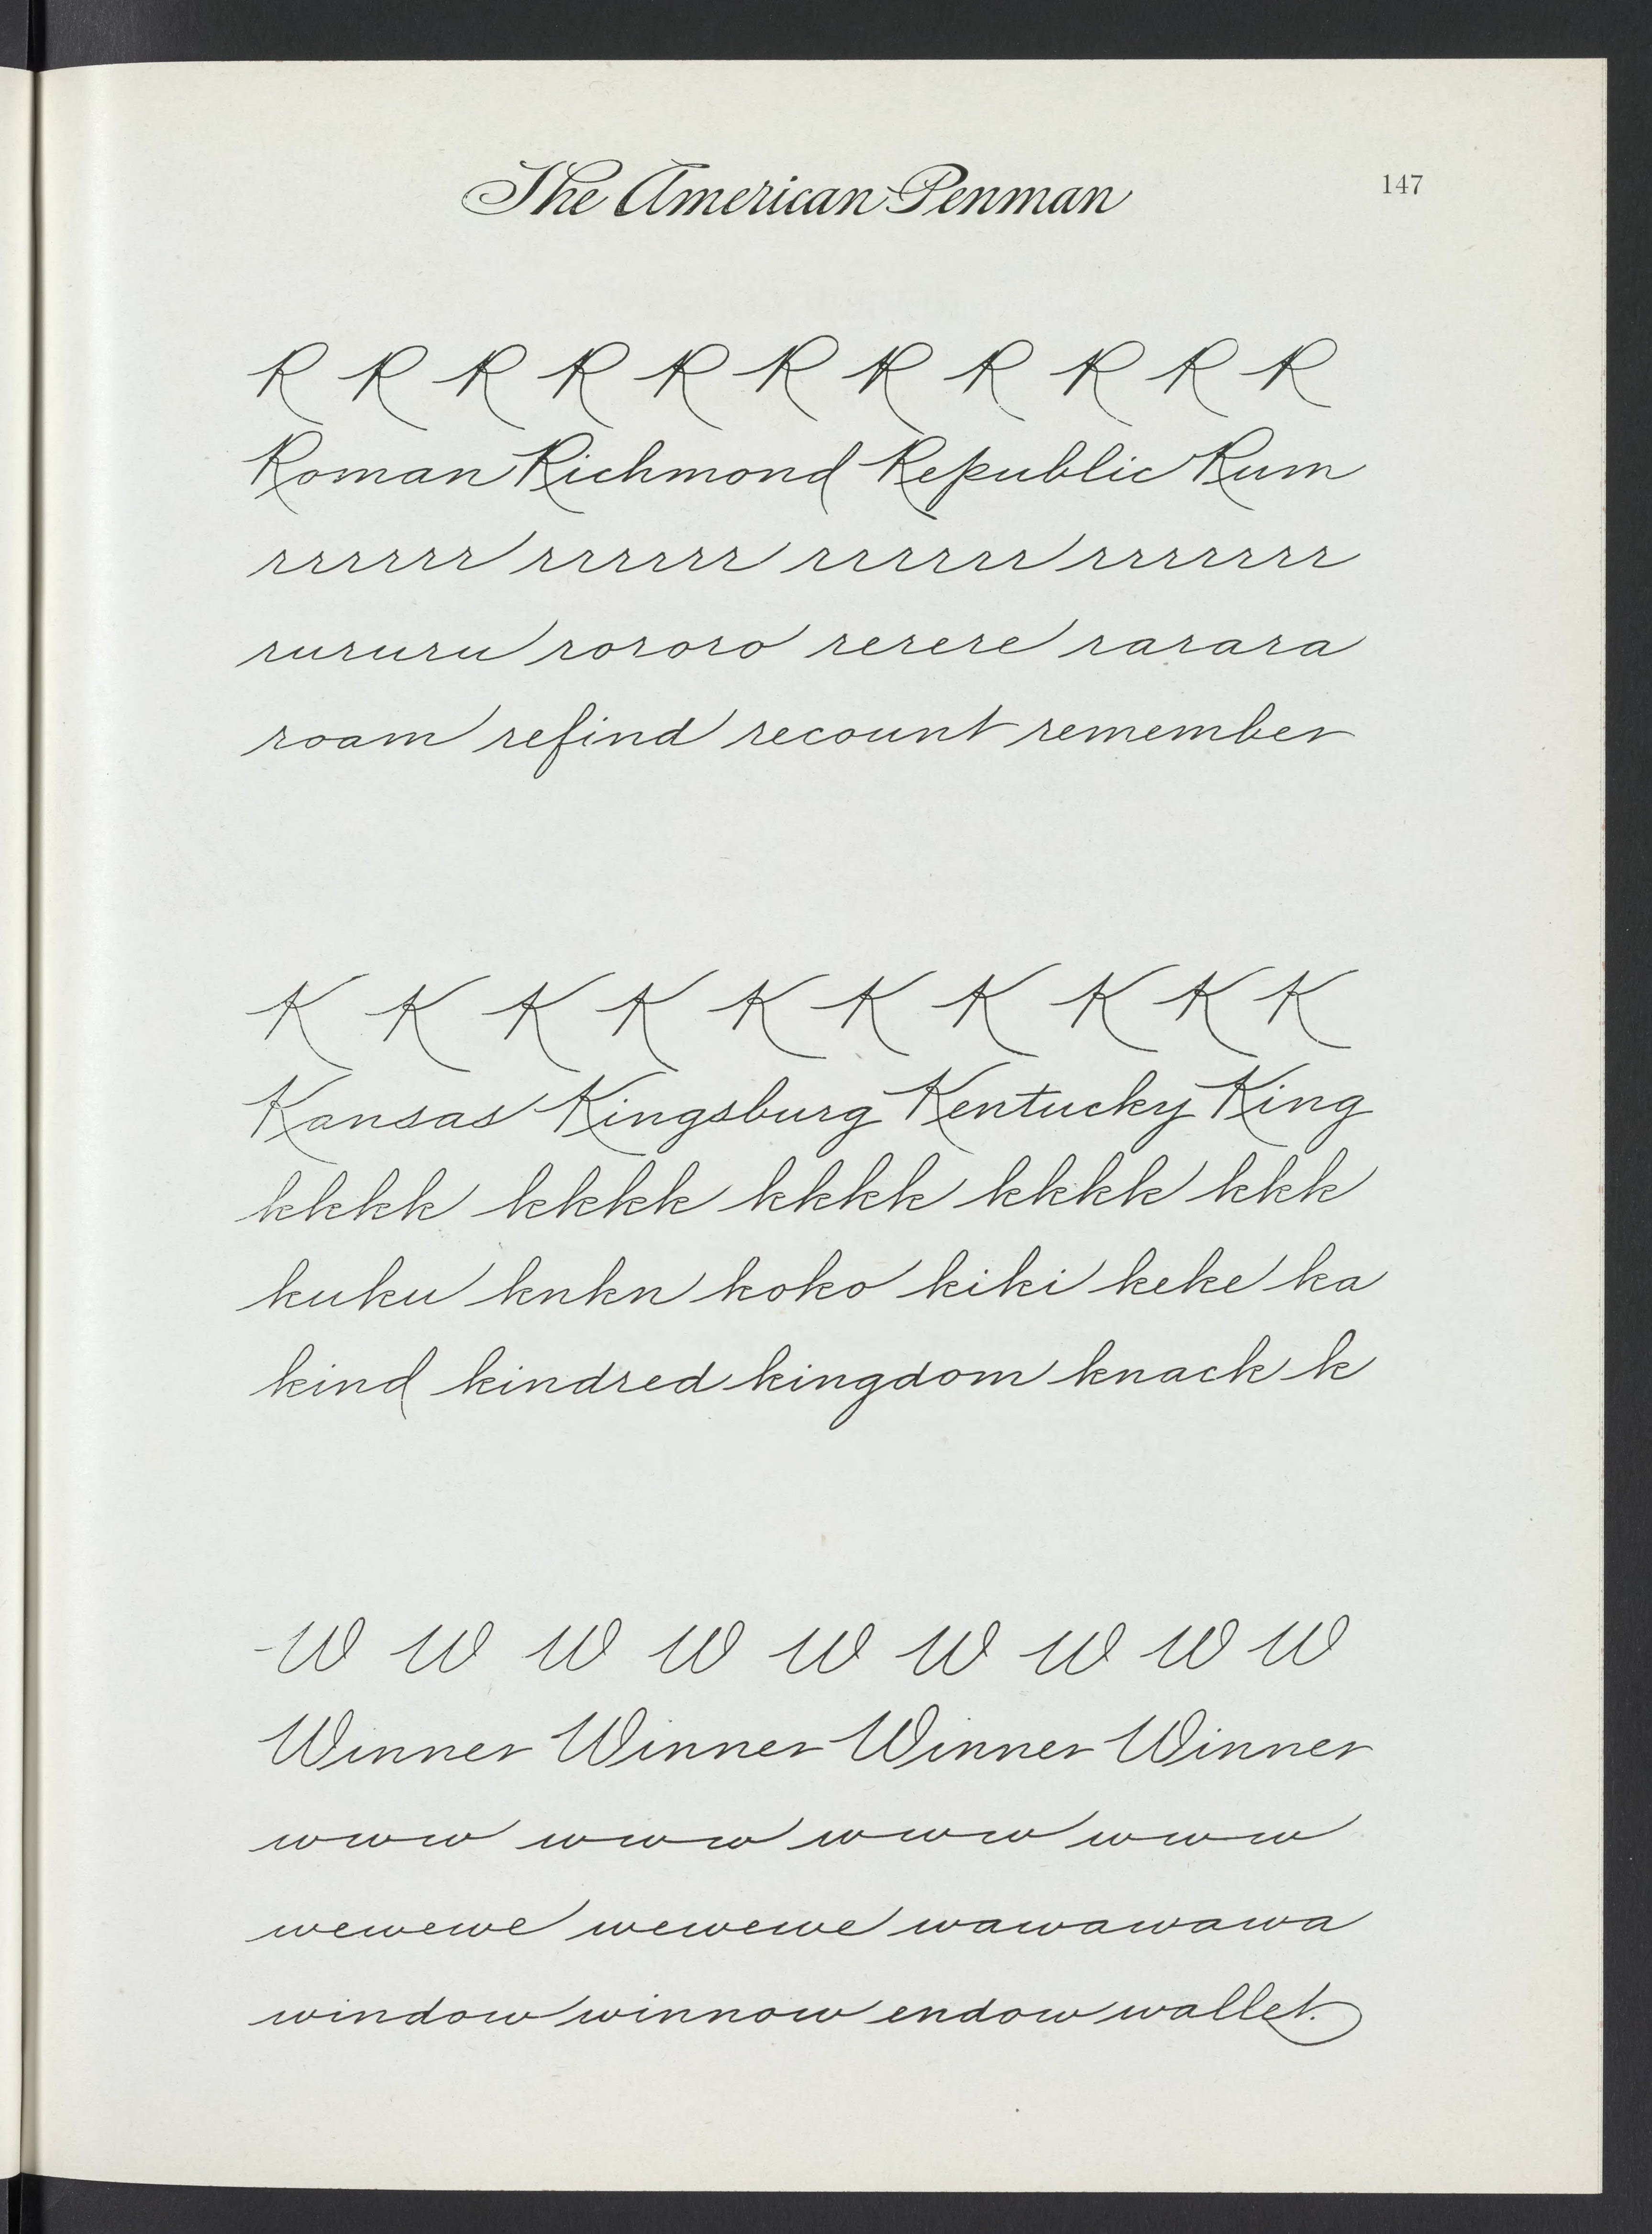 The American Penman
147
R R R R R R R R R R R
Roman Richmond Republic Rum
rrrrrr rrrrrr rrrrrr rrrrrrr
rururu rororo rerere rarara
roam refind recount remember
K K K K K K K K K K
Kansas Kingsburg Kentucky King
kkkk kkkk kkkk kkkk kkk
kuku knkn koko kiki keke ka
kind kindred kingdom knack k
W W W W W W W W W
Winner Winner Winner Winner
www www www www
wewewe wewewe wawawawa
window winnow endow wallet.